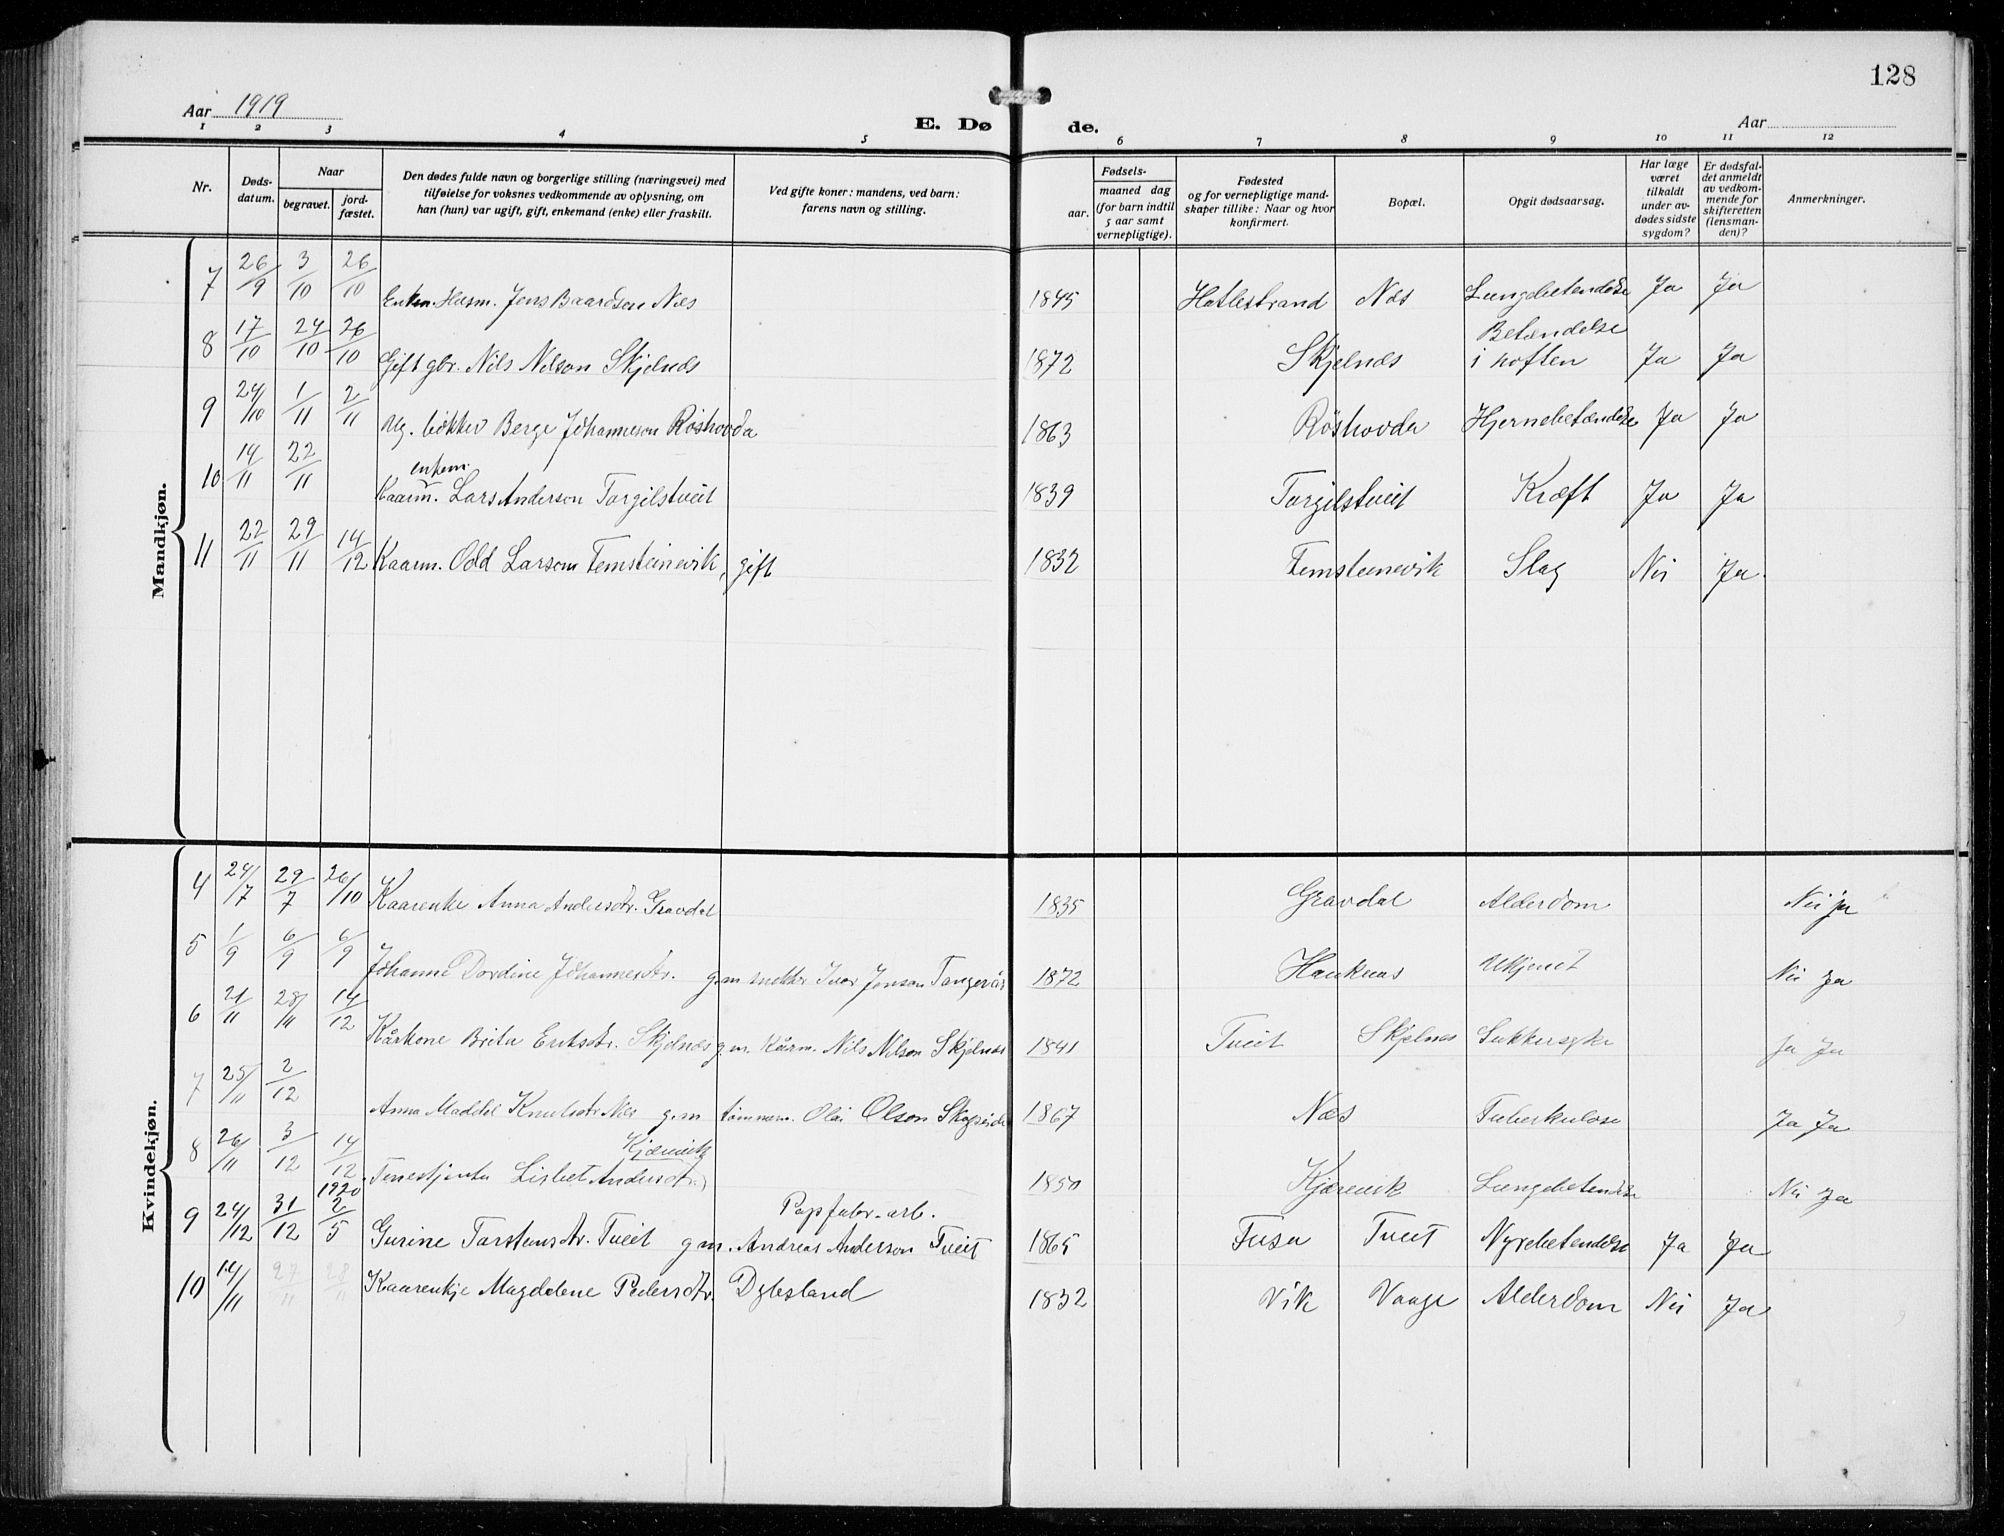 128
Aar 1919
E. Døde.
Aar
1 2 3 4 5 6 7 8 9 10 11 12
Nr.
Døds-datum.
Naar
begravet.
jord-fæstet.
Den dødes fulde navn og borgerlige stilling (næringsvei) med tilføielse for voksnes vedkommende av oplysning, om han (hun) var ugift, gift, enkemand (enke) eller fraskilt.
Ved gifte koner: mandens, ved barn: farens navn og stilling.
Fødsels-
aar.
maaned dag (for barn indtil 5 aar samt vernepligtige).
Fødested og for vernepligtige mandskaper tillike: Naar og hvor konfirmert.
Bopæl.
Opgit dødsaarsag.
Har læge været tilkaldt under avdødes sidste sygdom?
Er dødsfaldet anmeldt av vedkommende for skifteretten (lensmanden)?
Anmerkninger.
Mandkjøn.
7 26/9 3/10 26/10 Enkem. Husm. Jens Baardsen Næs 1845 Hatlestrand Næs Lungebetendelse Ja Ja
8 17/10 24/10 26/10 Gift gbr. Nils Nilson Skjelnæs 1872 Skjelnæs Betændelse i hoften Ja Ja
9 24/10 1/11 2/11 Ug. bøkker Berge Johanneson Røshovda 1863 Røshovda Hjernebetændelse Ja Ja
10 14/11 22/11 Kaarm. enkem. Lars Anderson Torgilstveit 1839 Torgilstveit Kræft Ja Ja
11 22/11 29/11 14/12 Kaarm. Odd Larson Femsteinevik, gift 1832 Femsteinevik Slag Nei Ja.
Kvindekjøn.
4 24/7 29/7 26/10 Kaarenke Anna Andersdtr. Gravdal 1835 Gravdal Alderdom Nei ja
5 1/9 6/9 6/9 Johanne Dordine Johannesdtr. g.m. Ivar Jonson Tangerås 1872 Hauknes Ukjent Nei ja
6 21/11 28/11 14/12 Kårkone Brita Eriksdtr. Skjelnæs g.m. Kårm. Nils Nilson Skjelnæs 1841 Tveit Skjelnes Sukkersyke ja Ja
7 25/11 2/12 Anna Maddel Knutsdtr Næs g.m tømmerm. Olai Olson 1867 Næs Tuberkulose Ja Ja
8 26/11 3/12 14/12 Tenestjenta Lisbet Andersdtr. Kjærevik 1850 Kjærevik Lungebetendelse Nei ja
9 24/12 31/12 1920 2/5 Gurine Torstensdtr. Tveit g.m. Papfabr.-arb. Andreas Anderson Tveit 1865 Fusa Tveit Nyrebetendelse Ja Ja
10 14/11 27/11 28/11 Kaarenkje Magdelene Pedersdtr. Dybesland 1832 Vik Vaage Alderdom Nei Ja